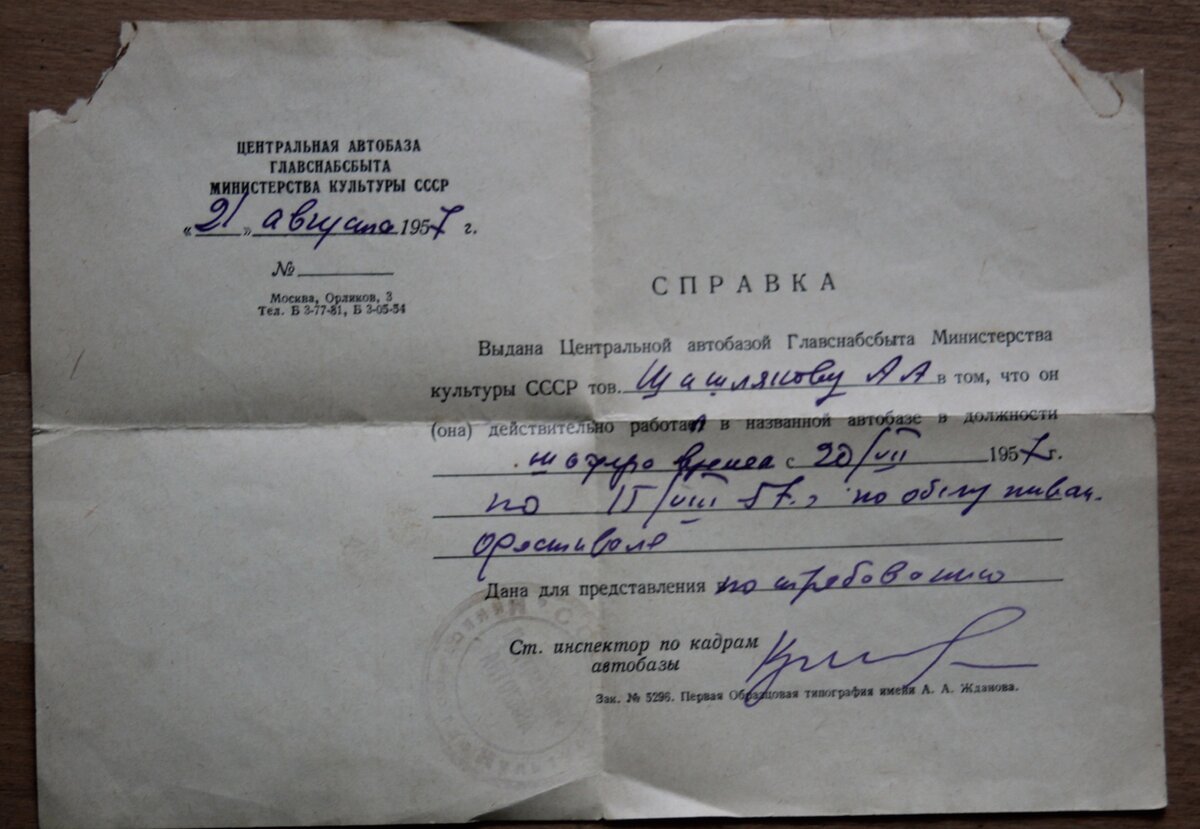 ЦЕНТРАЛЬНАЯ АВТОБАЗА
ГЛАВСНАБСБЫТА
МИНИСТЕРСТВА КУЛЬТУРЫ СССР
«21» августа 1957 г.
№
Москва, Орликов, 3
Тел. Б 3-77-81, Б 3-05-54
СПРАВКА
Выдана Центральной автобазой Главснабсбыта Министерства
культуры СССР тов. Шашлякову А А в том, что он
(она) действительно работал в названной автобазе в должности
шофера с 20/VII 1957 г.
по 15/VIII 57 г по обслуживан.
фестиваля
Дана для представления по требованию
Ст. инспектор по кадрам
автобазы
Зак. № 5296. Первая Образцовая типография имени А. А. Жданова.